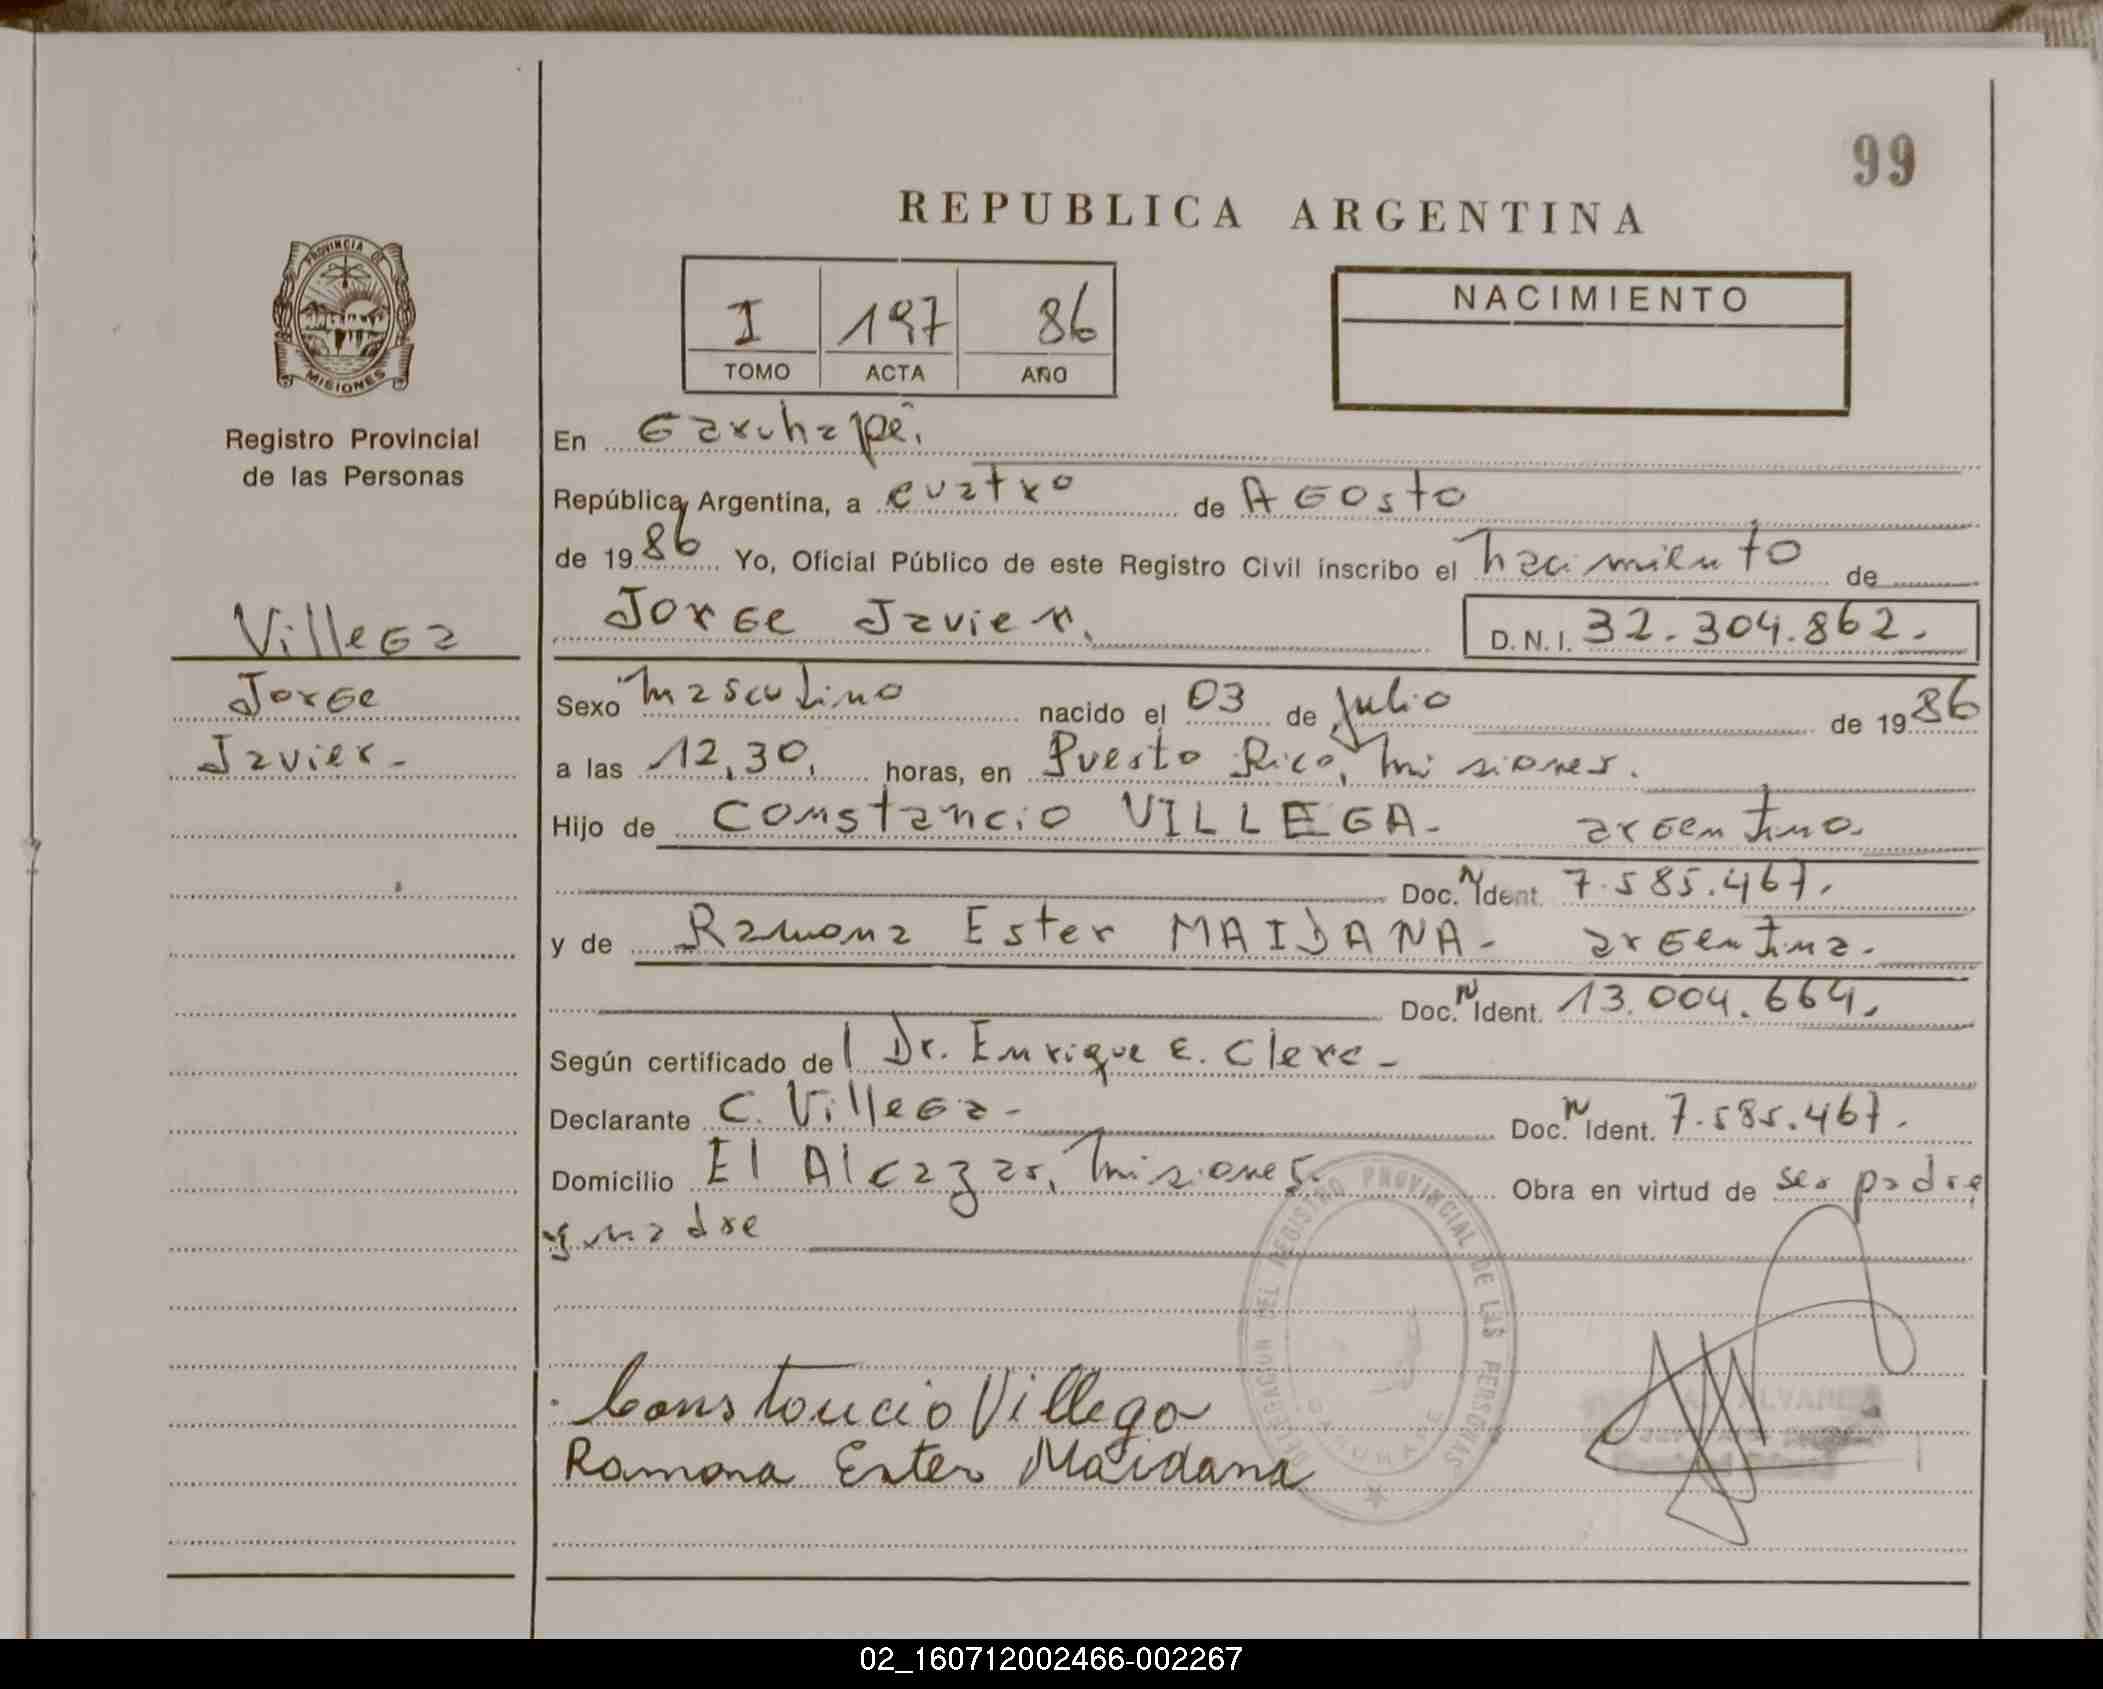 99
REPUBLICA ARGENTINA
PROVINCIA DE
MISIONES
Registro Provincial
de las Personas
I 197 86
TOMO ACTA AÑO
NACIMIENTO
En Garuhapé.
República Argentina, a cuatro de Agosto
de 1986 Yo, Oficial Público de este Registro Civil inscribo el nacimiento de
Jorge Javier. D.N.I. 32.304.862.-
Villega
Jorge
Javier-
Sexo masculino nacido el 03 de julio de 1986
a las 12,30, horas, en Puerto Rico, misiones.
Hijo de Constancio VILLEGA- argentino.
Doc. N Ident. 7.585.467.
y de Ramona Ester MAIDANA- argentina.
Doc. N Ident. 13.004.664.
Según certificado del Dr. Enrique E. Clerc-
Declarante C. Villega- Doc. N Ident. 7.585.467.
Domicilio El Alcazar, misiones. Obra en virtud de ser padre
y madre
REGISTRO PROVINCIAL DE LAS PERSONAS
Constancio Villega
Ramona Ester Maidana
02_160712002466-002267